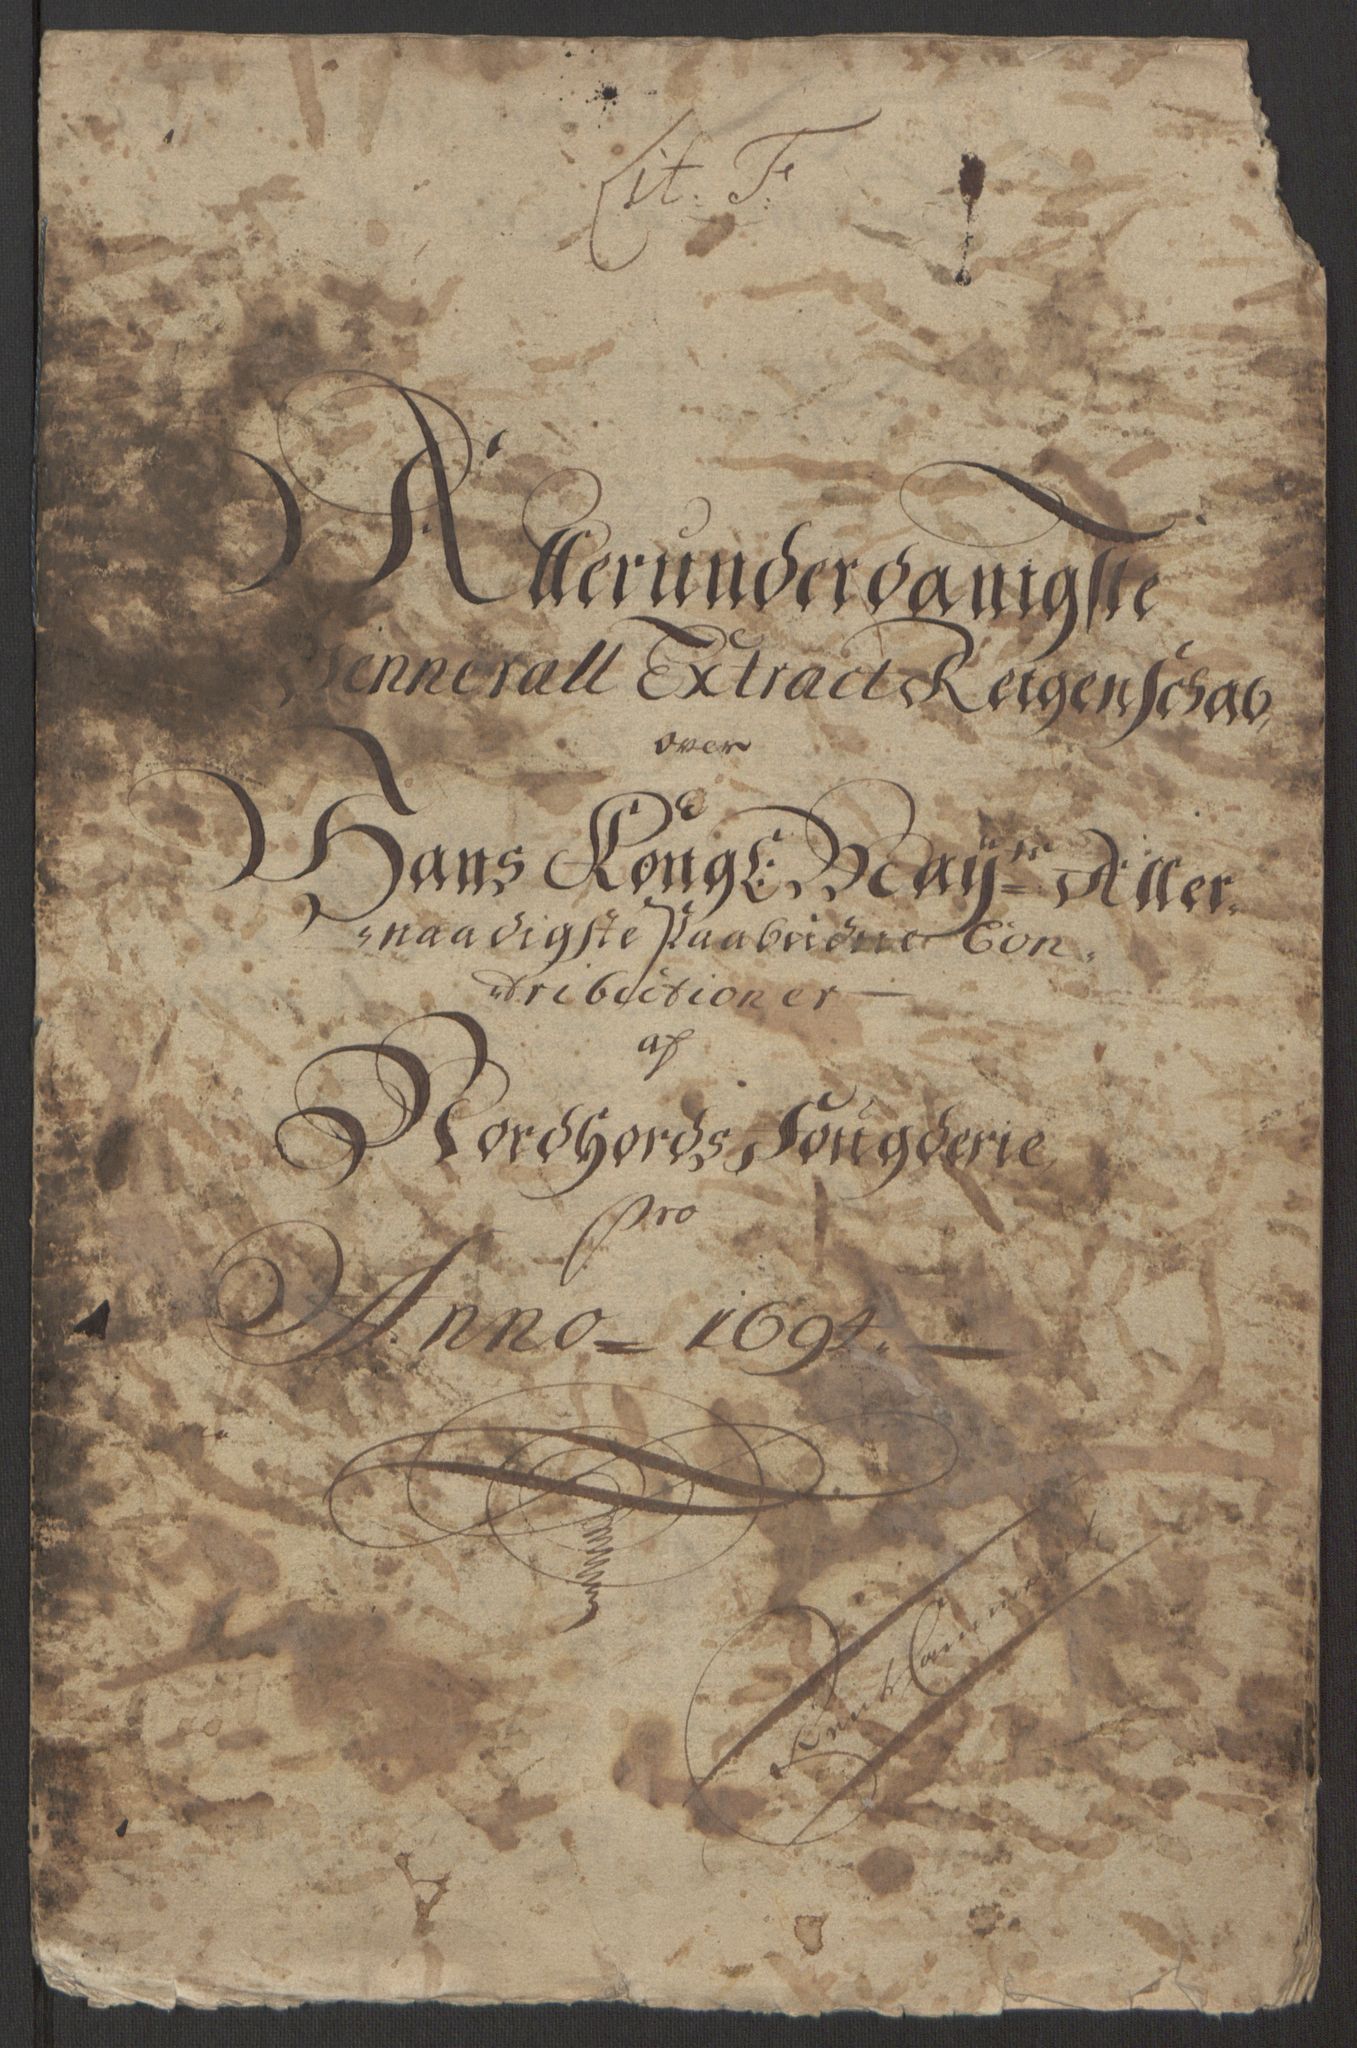 Lit. F:
Allerunderdanigste
Gennerall Extract Reigenschab
over
Hans Kongl May:tz Aller-
naadigste Paabudne Con-
tributioner
af
Nordhords Fougderie
pro
Anno = 1694.
Rente Cammeret